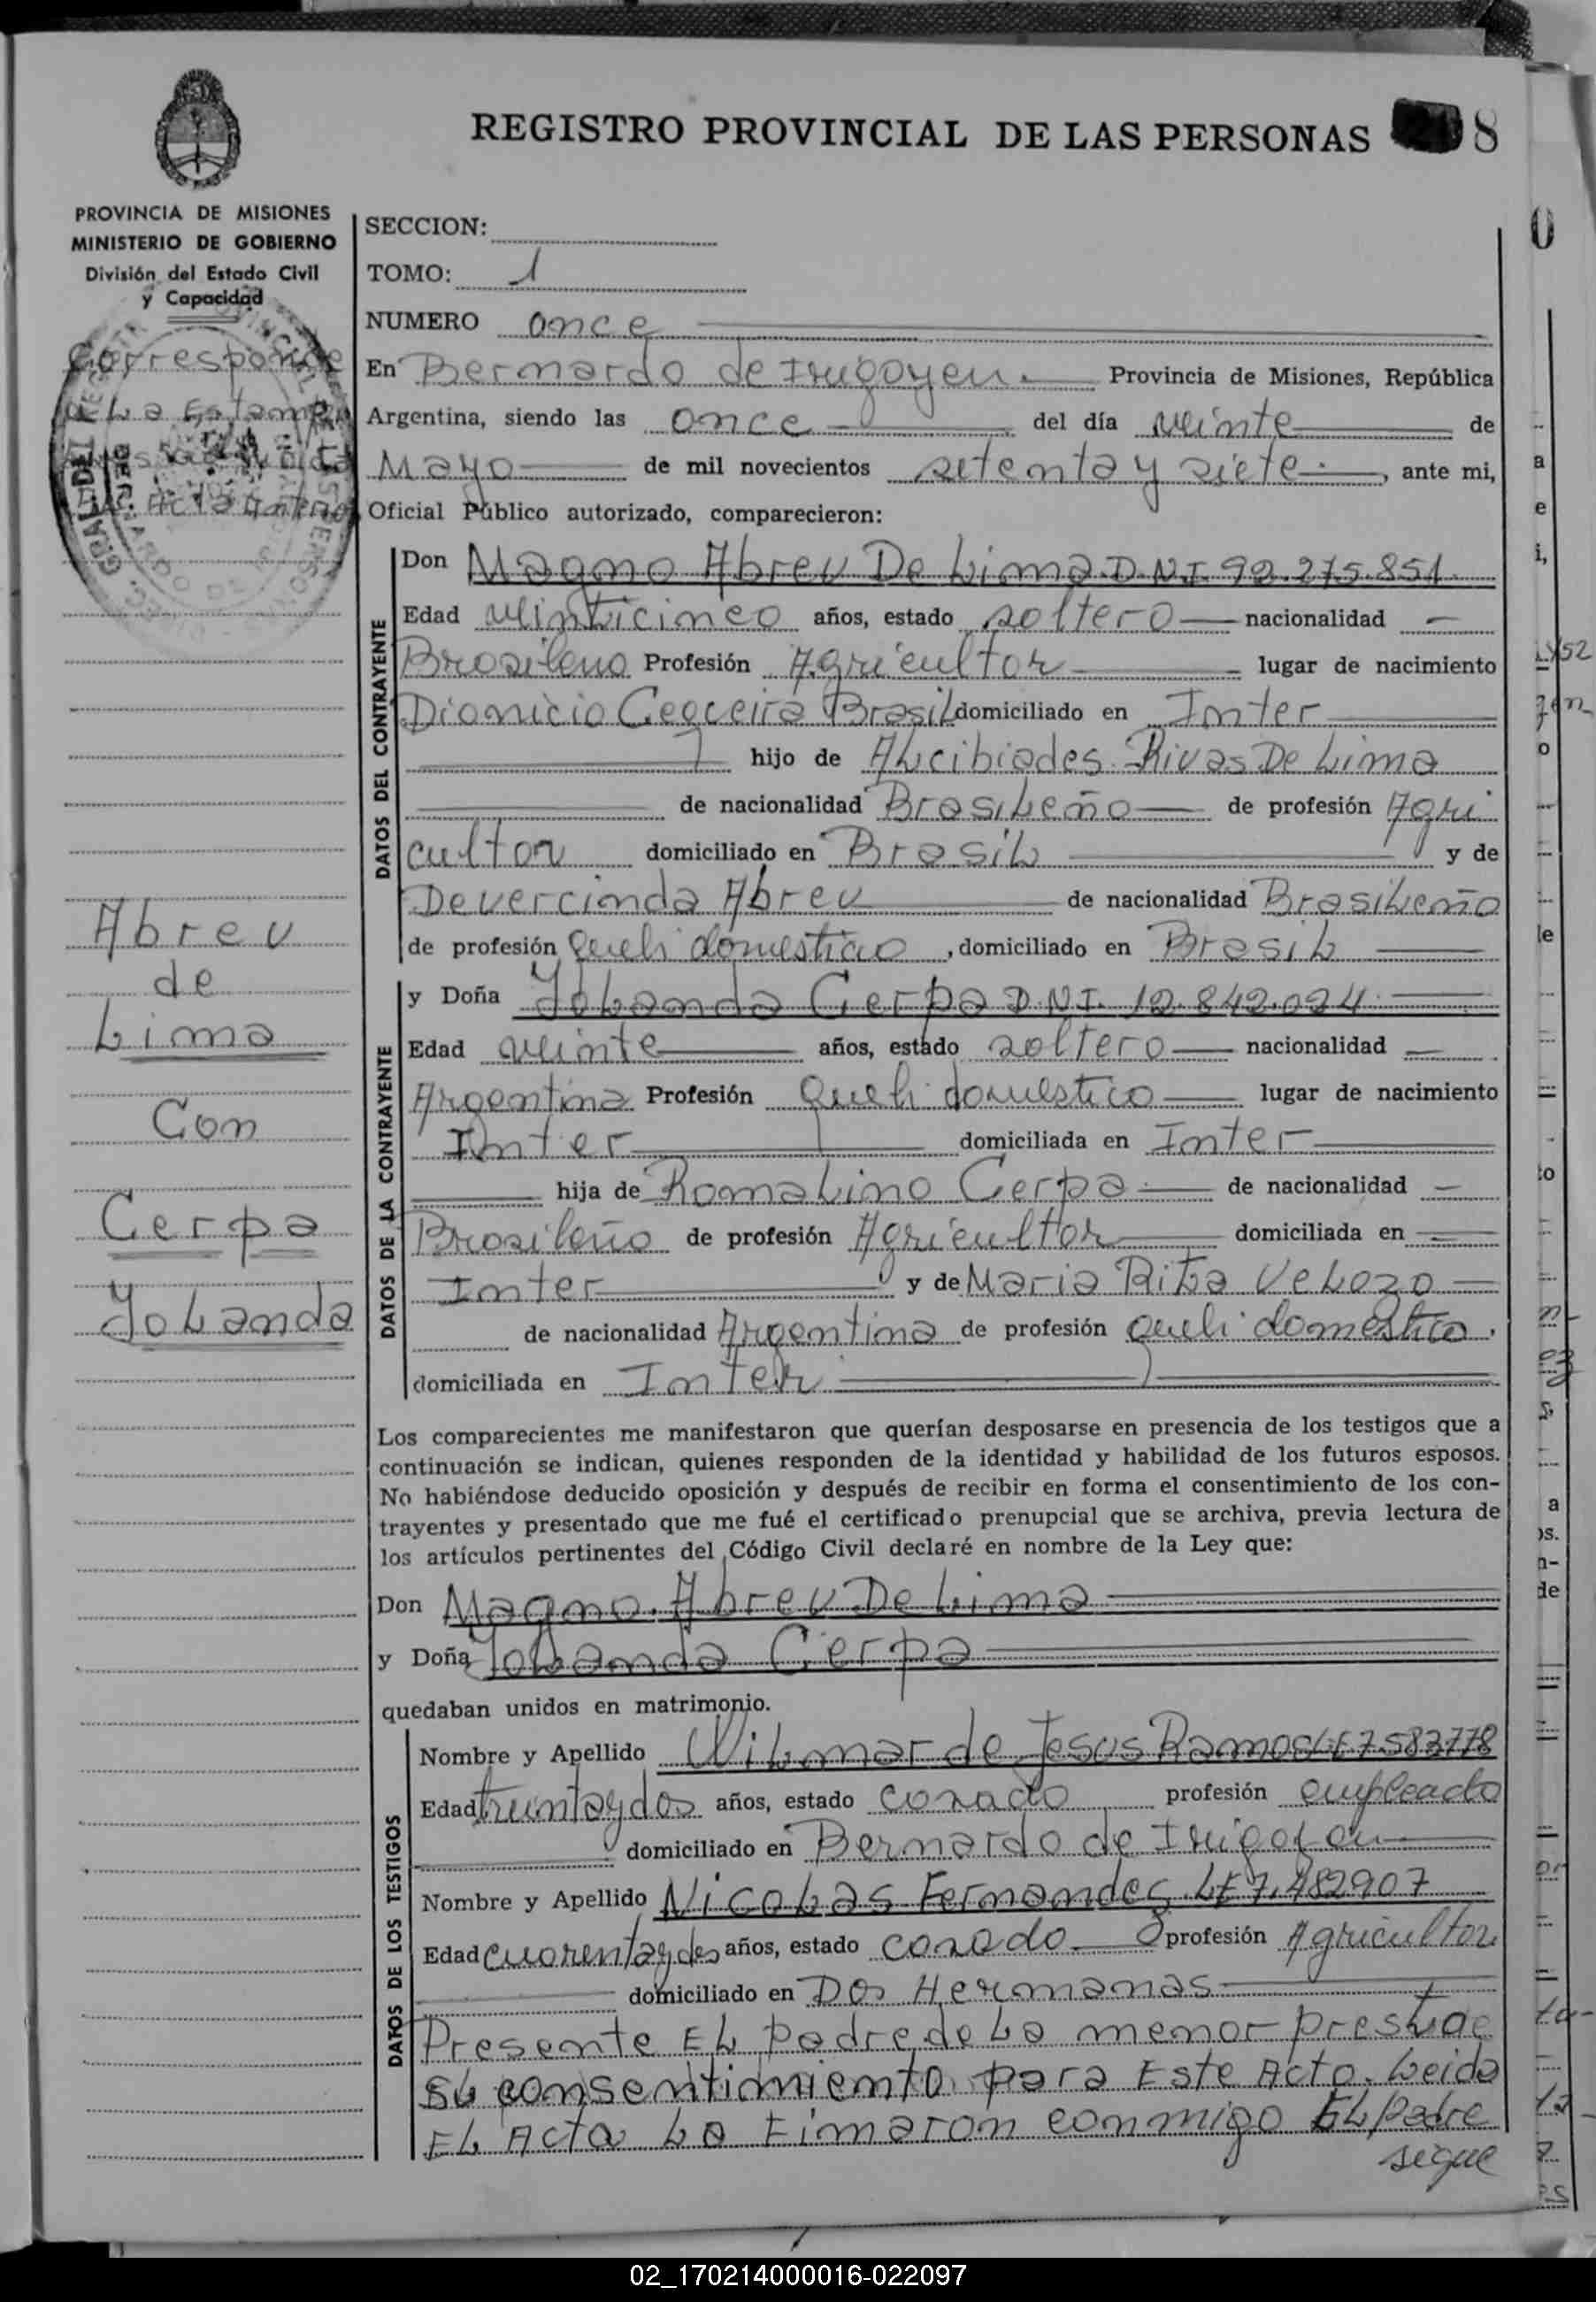 REGISTRO PROVINCIAL DE LAS PERSONAS 8
PROVINCIA DE MISIONES
MINISTERIO DE GOBIERNO
División del Estado Civil
y Capacidad
Corresponde
a La Estampa
Acta Anterior
Abreu
de
Lima
Con
Cerpa
Yolanda
SECCION:
TOMO: 1
NUMERO once
En Bernardo de Irigoyen. Provincia de Misiones, República
Argentina, siendo las once del día veinte de
Mayo de mil novecientos setenta y siete, ante mi,
Oficial Público autorizado, comparecieron:
DATOS DEL CONTRAYENTE
Don Magno Abreu De Lima D.N.I. 92.275.851
Edad veinticinco años, estado soltero nacionalidad
Brasileño Profesión Agricultor lugar de nacimiento
Dionicio Ceqceira Brasil domiciliado en Inter
hijo de Alcibiades Rivas De Lima
de nacionalidad Brasileño de profesión Agri
cultor domiciliado en Brasil y de
Devercinda Abreu de nacionalidad Brasileño
de profesión Queh domestico, domiciliado en Brasil
DATOS DE LA CONTRAYENTE
y Doña Yolanda Cerpa D.N.I. 12.842.024
Edad veinte años, estado soltero nacionalidad
Argentina Profesión Queh domestico lugar de nacimiento
Inter domiciliada en Inter
hija de Romalino Cerpa de nacionalidad
Brasileño de profesión Agricultor domiciliada en
Inter y de Maria Rita Velozo
de nacionalidad Argentina de profesión queh domestico.
domiciliada en Inter
Los comparecientes me manifestaron que querían desposarse en presencia de los testigos que a
continuación se indican, quienes responden de la identidad y habilidad de los futuros esposos.
No habiéndose deducido oposición y después de recibir en forma el consentimiento de los con-
trayentes y presentado que me fué el certificado prenupcial que se archiva, previa lectura de
los artículos pertinentes del Código Civil declaré en nombre de la Ley que:
Don Magno Abreu De Lima
y Doña Yolanda Cerpa
quedaban unidos en matrimonio.
DATOS DE LOS TESTIGOS
Nombre y Apellido Wilmar de Jesus Ramos LE 7.583.778
Edad treintaydos años, estado casado profesión empleado
domiciliado en Bernardo de Irigoyen
Nombre y Apellido Nicolas Fernandes LE 7.482907
Edad cuarentaydos años, estado casado profesión Agricultor
domiciliado en Dos Hermanas
Presente El padre de La menor prestae
su consentimiento para Este Acto. Leida
EL Acta La Fimaron conmigo EL padre
sigue
02_170214000016-022097